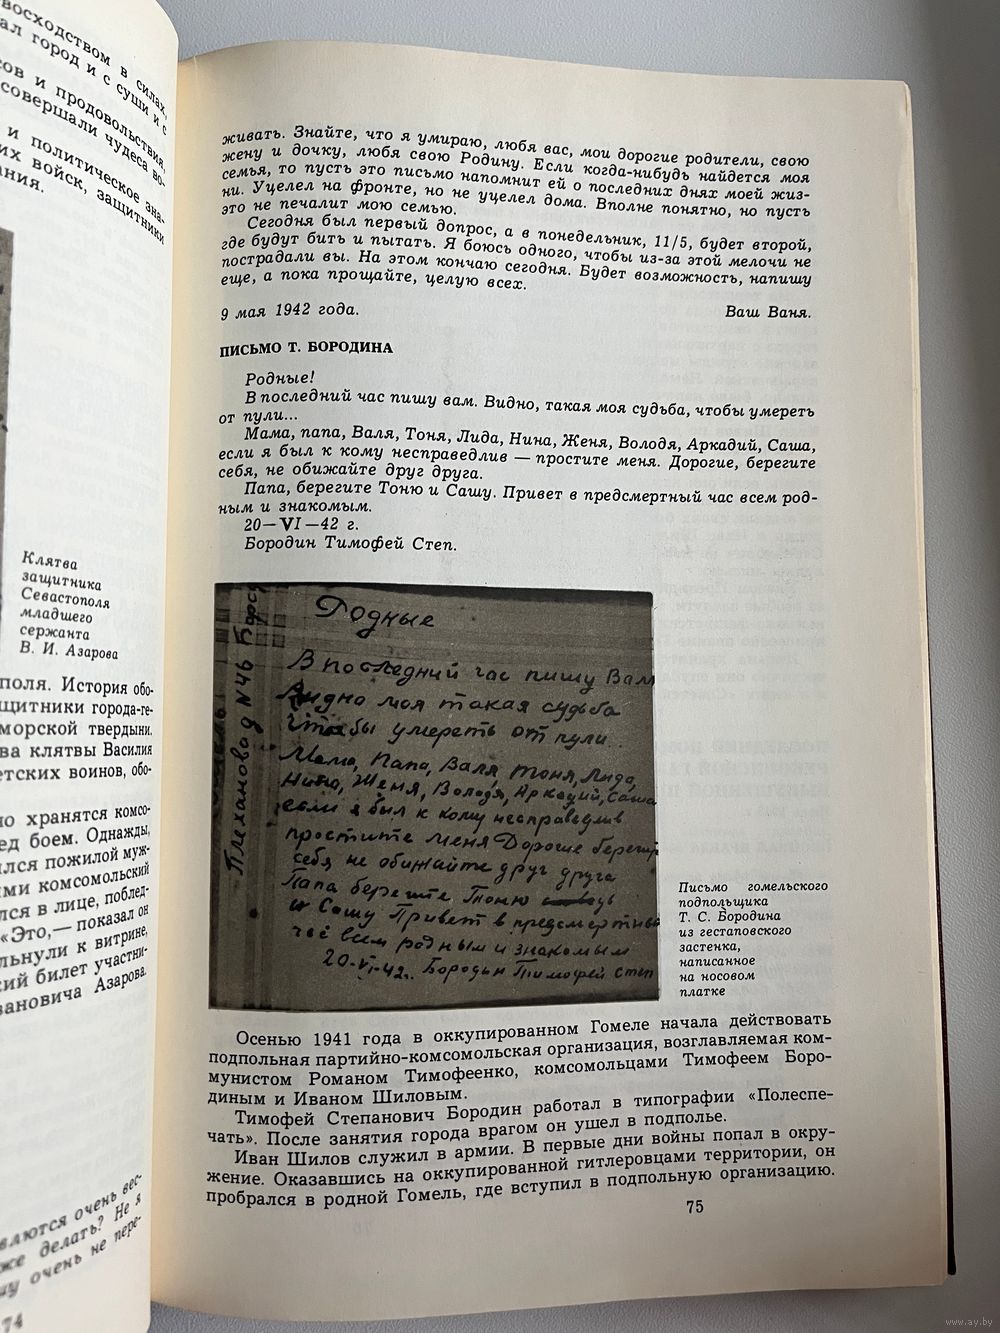 восходством в силах,
ал город и с суши и с
ов и продовольствия,
совершали чудеса во-
и политическое зна-
их войск, защитники
ания.
Клятва
защитника
Севастополя
младшего
сержанта
В. И. Азарова
поля. История обо-
щитники города-ге-
морской твердыни.
ва клятвы Василия
етских воинов, обо-
но хранятся комсо-
ед боем. Однажды,
ился пожилой муж-
ыми комсомольский
лся в лице, поблед-
«Это,— показал он
льнули к витрине,
ский билет участни-
вановича Азарова.
вляются очень вес-
же делать? Не я
шу очень не пере-
74
живать. Знайте, что я умираю, любя вас, мои дорогие родители, свою
жену и дочку, любя свою Родину. Если когда-нибудь найдется моя
семья, то пусть это письмо напомнит ей о последних днях моей жиз-
ни. Уцелел на фронте, но не уцелел дома. Вполне понятно, но пусть
это не печалит мою семью.
Сегодня был первый допрос, а в понедельник, 11/5, будет второй,
где будут бить и пытать. Я боюсь одного, чтобы из-за этой мелочи не
пострадали вы. На этом кончаю сегодня. Будет возможность, напишу
еще, а пока прощайте, целую всех.
9 мая 1942 года. Ваш Ваня.
ПИСЬМО Т. БОРОДИНА
Родные!
В последний час пишу вам. Видно, такая моя судьба, чтобы умереть
от пули...
Мама, папа, Валя, Тоня, Лида, Нина, Женя, Володя, Аркадий, Саша,
если я был к кому несправедлив — простите меня. Дорогие, берегите
себя, не обижайте друг друга.
Папа, берегите Тоню и Сашу. Привет в предсмертный час всем род-
ным и знакомым.
20—VI—42 г.
Бородин Тимофей Степ.
Плеханова д N46 Боро
Родные
В последний час пишу Вам
Видно моя такая судьба
чтобы умереть от пули...
Мама, Папа, Валя Тоня, Лида,
Нина, Женя, Володя, Аркадий, Саша
если я был к кому несправедлив
простите меня Дорогие берегит
себя не обижайте друг друга
Папа берегите Тоню
и Сашу Привет в предсмертны
час всем родным и знакомым
20-VI-42г. Бородин Тимофей Степ
Письмо гомельского
подпольщика
Т. С. Бородина
из гестаповского
застенка,
написанное
на носовом
платке
Осенью 1941 года в оккупированном Гомеле начала действовать
подпольная партийно-комсомольская организация, возглавляемая ком-
мунистом Романом Тимофеенко, комсомольцами Тимофеем Боро-
диным и Иваном Шиловым.
Тимофей Степанович Бородин работал в типографии «Полеспе-
чать». После занятия города врагом он ушел в подполье.
Иван Шилов служил в армии. В первые дни войны попал в окру-
жение. Оказавшись на оккупированной гитлеровцами территории, он
пробрался в родной Гомель, где вступил в подпольную организацию.
75
www.ay.by